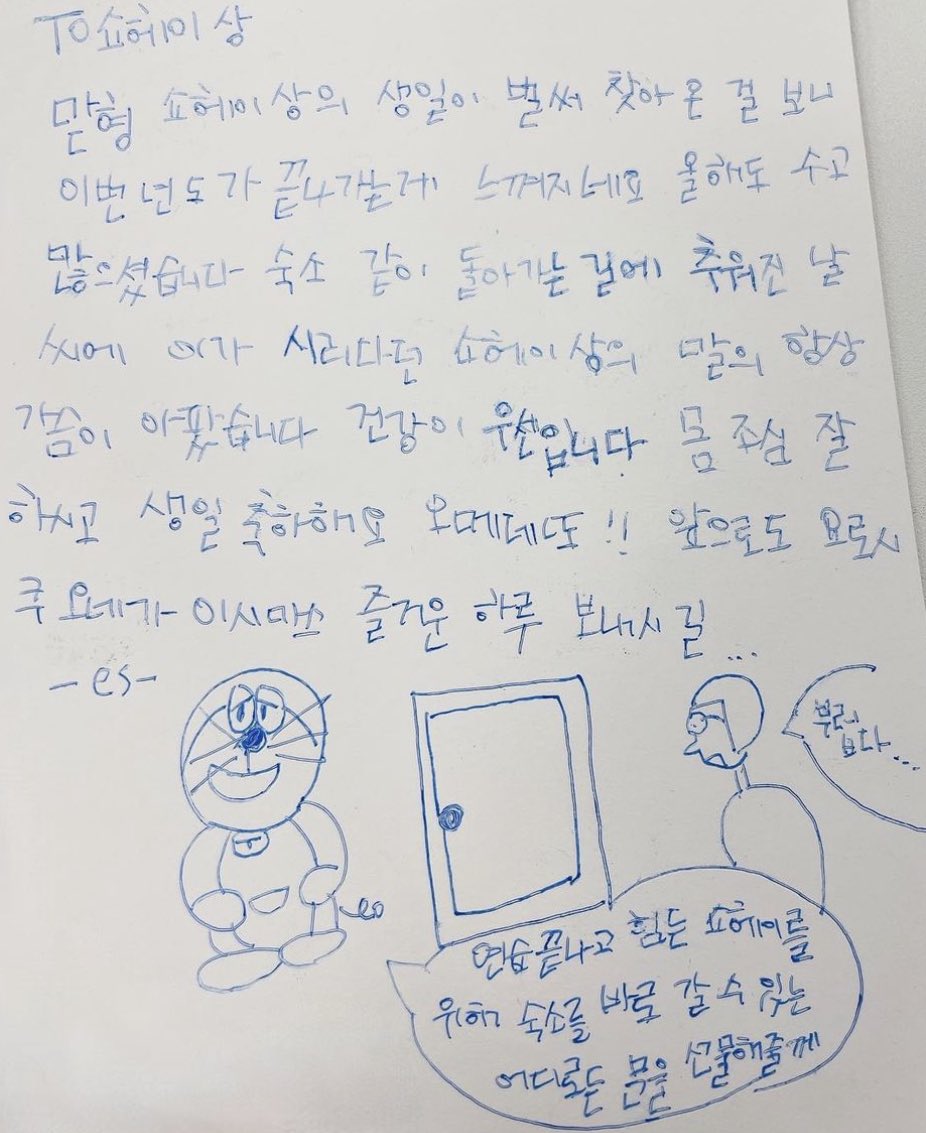 TO 쇼헤이 상
맏형 쇼헤이상의 생일이 벌써 찾아온 걸 보니
이번년도가 끝나가는게 느껴지네요 올해도 수고
많으셨습니다 숙소 같이 돌아가는 길에 추워진 날
씨에 이가 시리다던 쇼헤이상의 말의 항상
가슴이 아팠습니다 건강이 우선입니다 몸 조심 잘
하시고 생일 축하해요 오메데또!! 앞으로도 요로시
쿠 오네가이시매스 즐거운 하루 보내시길...
-es-
부럽
다...
연습끝나고 힘든 쇼헤이를
위해 숙소를 바로 갈 수 있는
어디로든 문을 선물해줄게